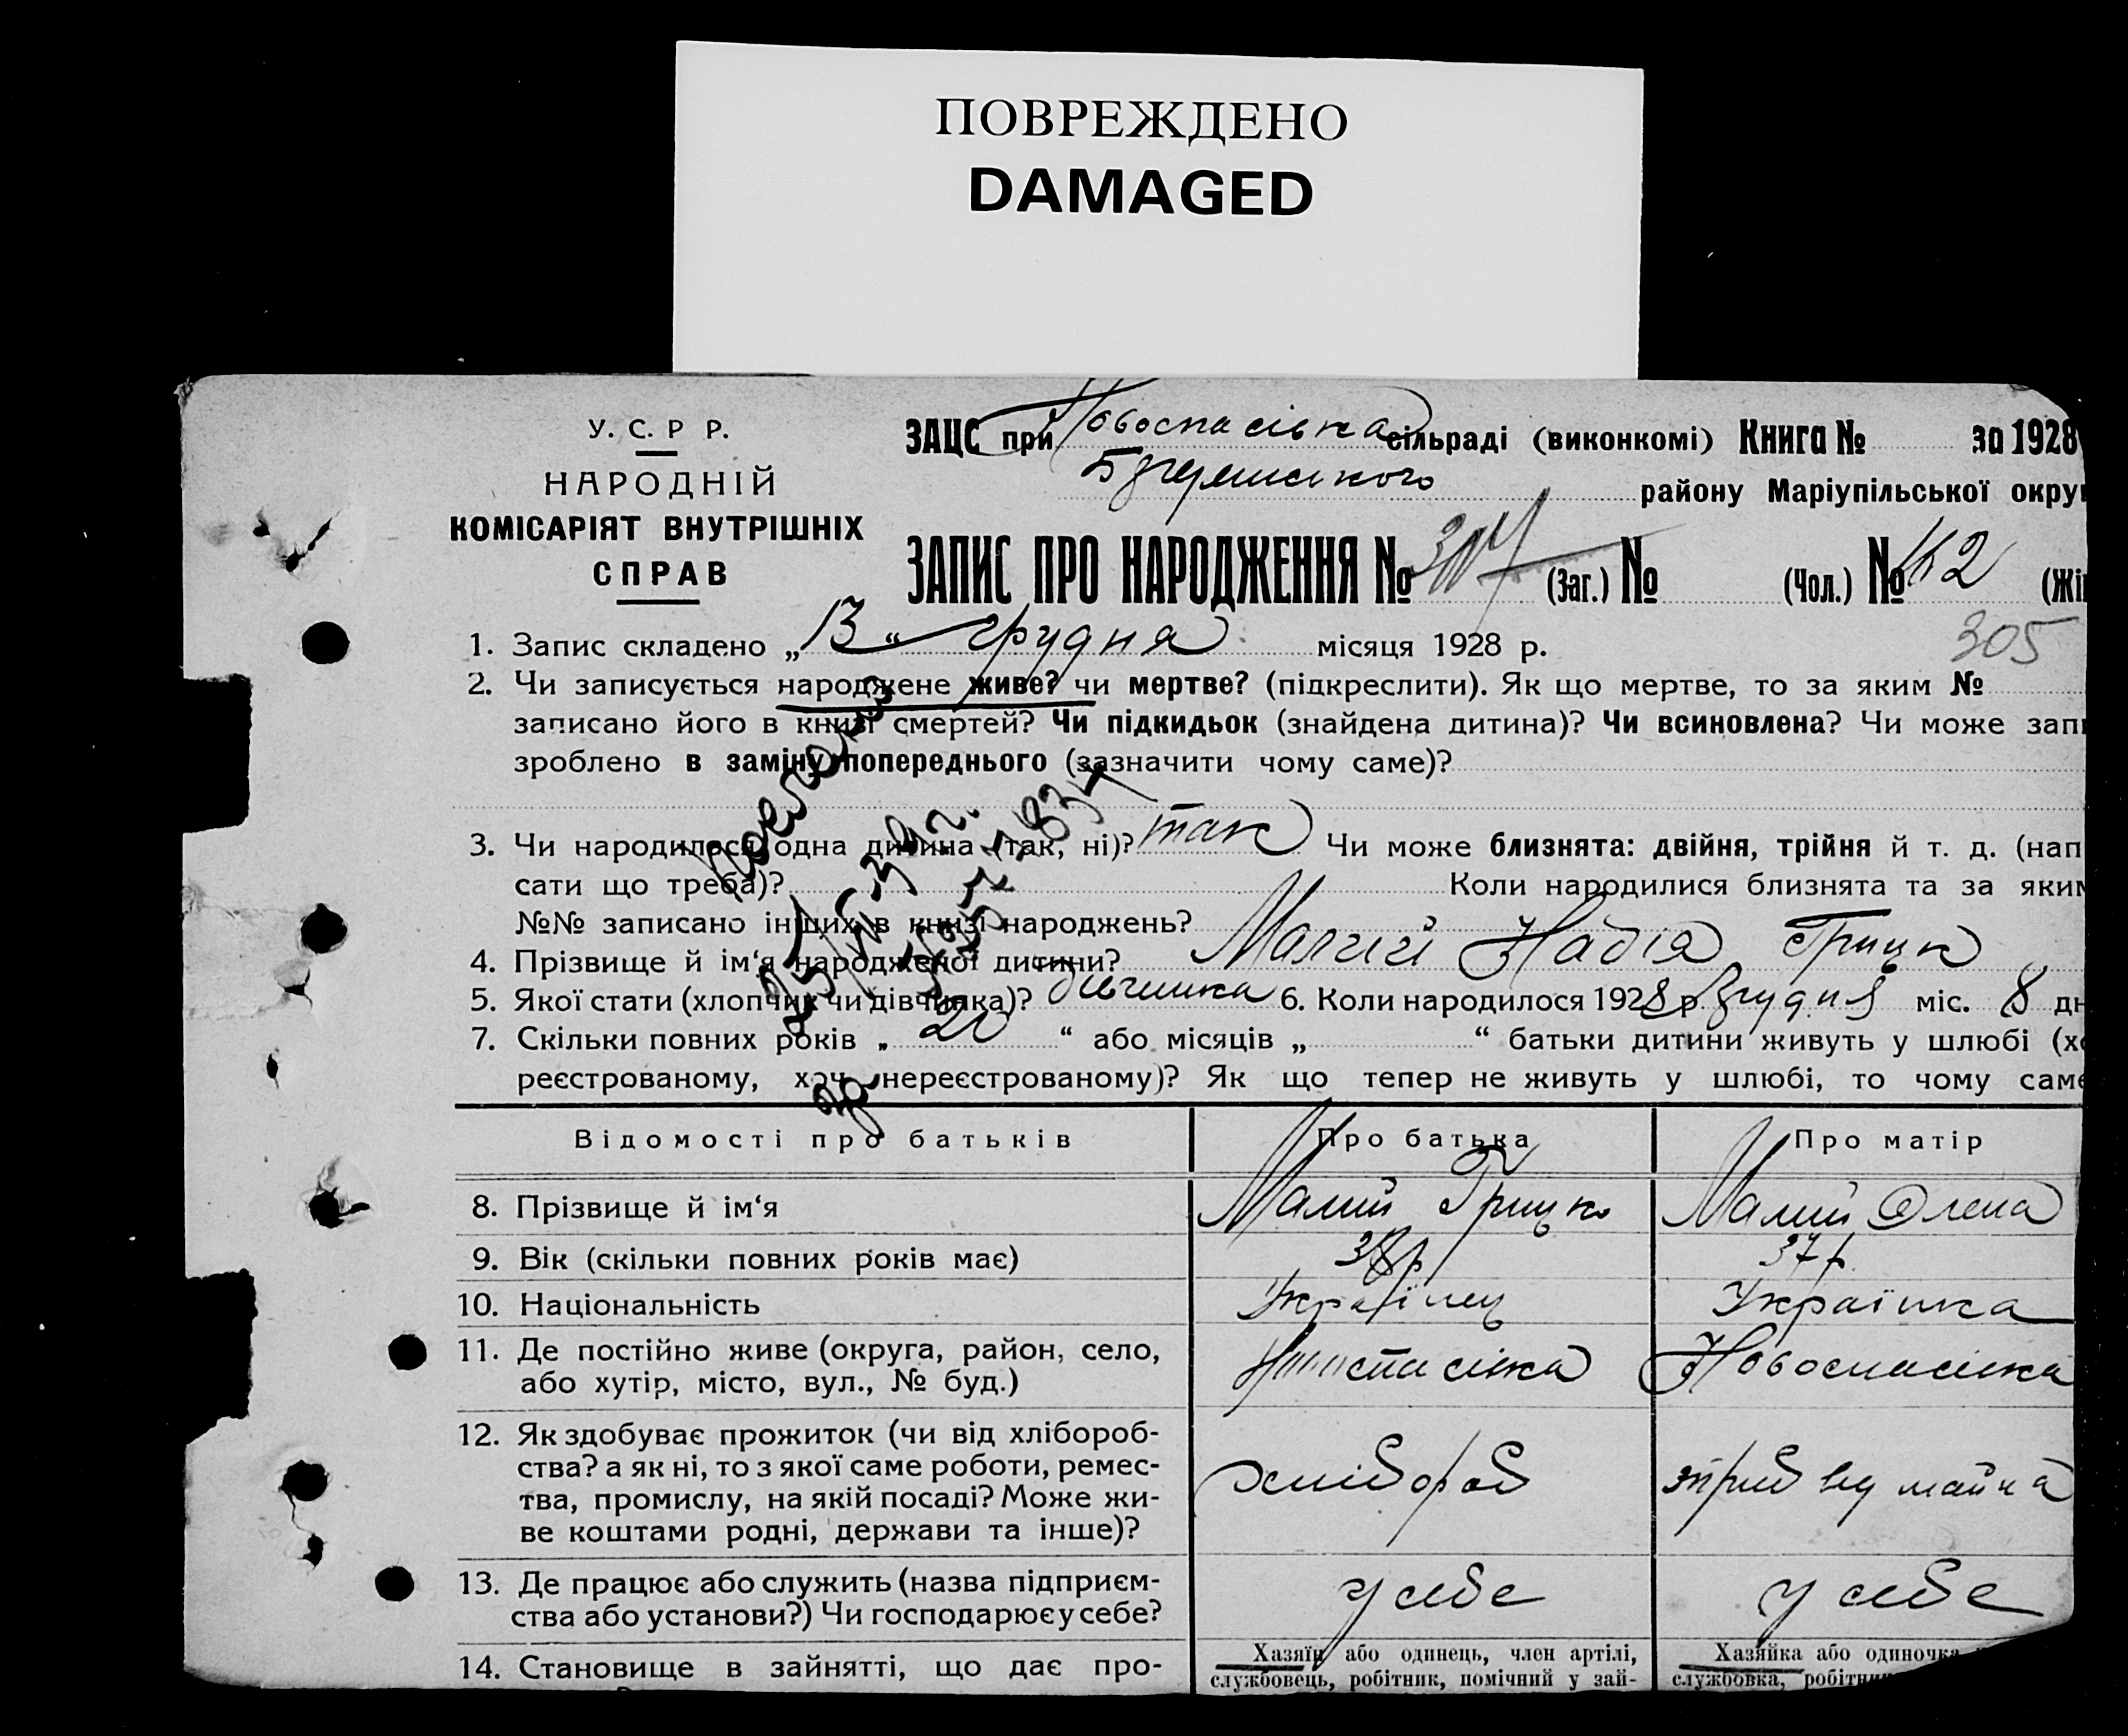 ПОВРЕЖДЕНО
DAMAGED
У. С. Р Р.
НАРОДНІЙ
КОМІСАРІЯТ ВНУТРІШНІХ
СПРАВ
ЗАЦС при Новоспасівка сільраді (виконкомі) Книга № за 1928
району Маріупільської окру
ЗАПИС ПРО НАРОДЖЕННЯ № (Заг.) № (Чол.) № 162 (Жі
305
1. Запис складено „13“ грудня місяця 1928 р.
2. Чи записується народжене живе? чи мертве? (підкреслити). Як що мертве, то за яким №
записано його в книзі смертей? Чи підкидьок (знайдена дитина)? Чи всиновлена? Чи може зап
зроблено в заміну попереднього (зазначити чому саме)?
3. Чи народилося одна дитина (так, ні)? так Чи може близнята: двійня, трійня й т. д. (нап
сати що треба)? Коли народилися близнята та за яким
№№ записано інших в книзі народжень?
4. Прізвище й ім‘я народженої дитини? Малий Надія Грицк
5. Якої стати (хлопчик чи дівчинка)? дівчинка 6. Коли народилося 1928 р. грудня міс. 8 дн
7. Скільки повних років „ 20 “ або місяців „ “ батьки дитини живуть у шлюбі (х
реєстрованому, хоч нереєстрованому)? Як що тепер не живуть у шлюбі, то чому саме
Відомості про батьків Про батька Про матір
8. Прізвище й ім‘я Малий Грицко Малий Олена
9. Вік (скільки повних років має) 38р 37р.
10. Національність Українец Українка
11. Де постійно живе (округа, район, село, або хутір, місто, вул., № буд.) Новоспасівка Новоспасівка
12. Як здобуває прожиток (чи від хлібороб-
ства? а як ні, то з якої саме роботи, ремес-
тва, промислу, на якій посаді? Може жи-
ве коштами родні, держави та інше)?
хлібороб
13. Де працює або служить (назва підприєм-
ства або установи?) Чи господарює у себе?
у себе у себе
14. Становище в зайнятті, що дає про-
Хазяїн або одинець, член артілі,
службовець, робітник, помічний у зай-
Хазяйка або одиночка
службовка, робітн